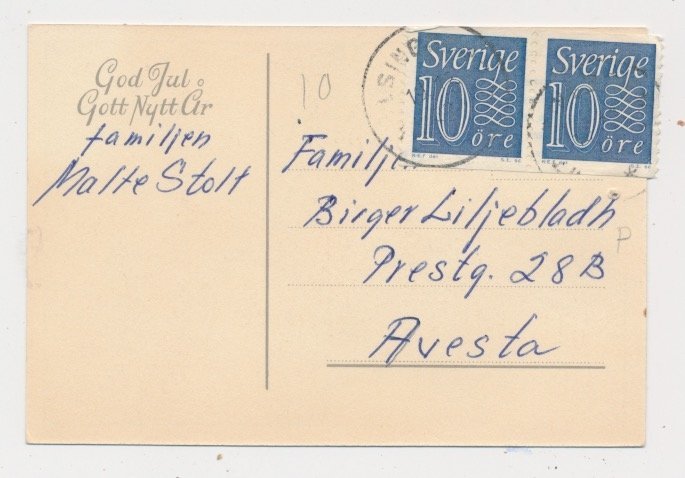 God Jul o
Gott Nytt År
familjen
Malte Stolt
10
Sverige
10
öre
Sverige
10
öre
Familje
Birger Liljebladh
Prestg. 28B
P
Avesta